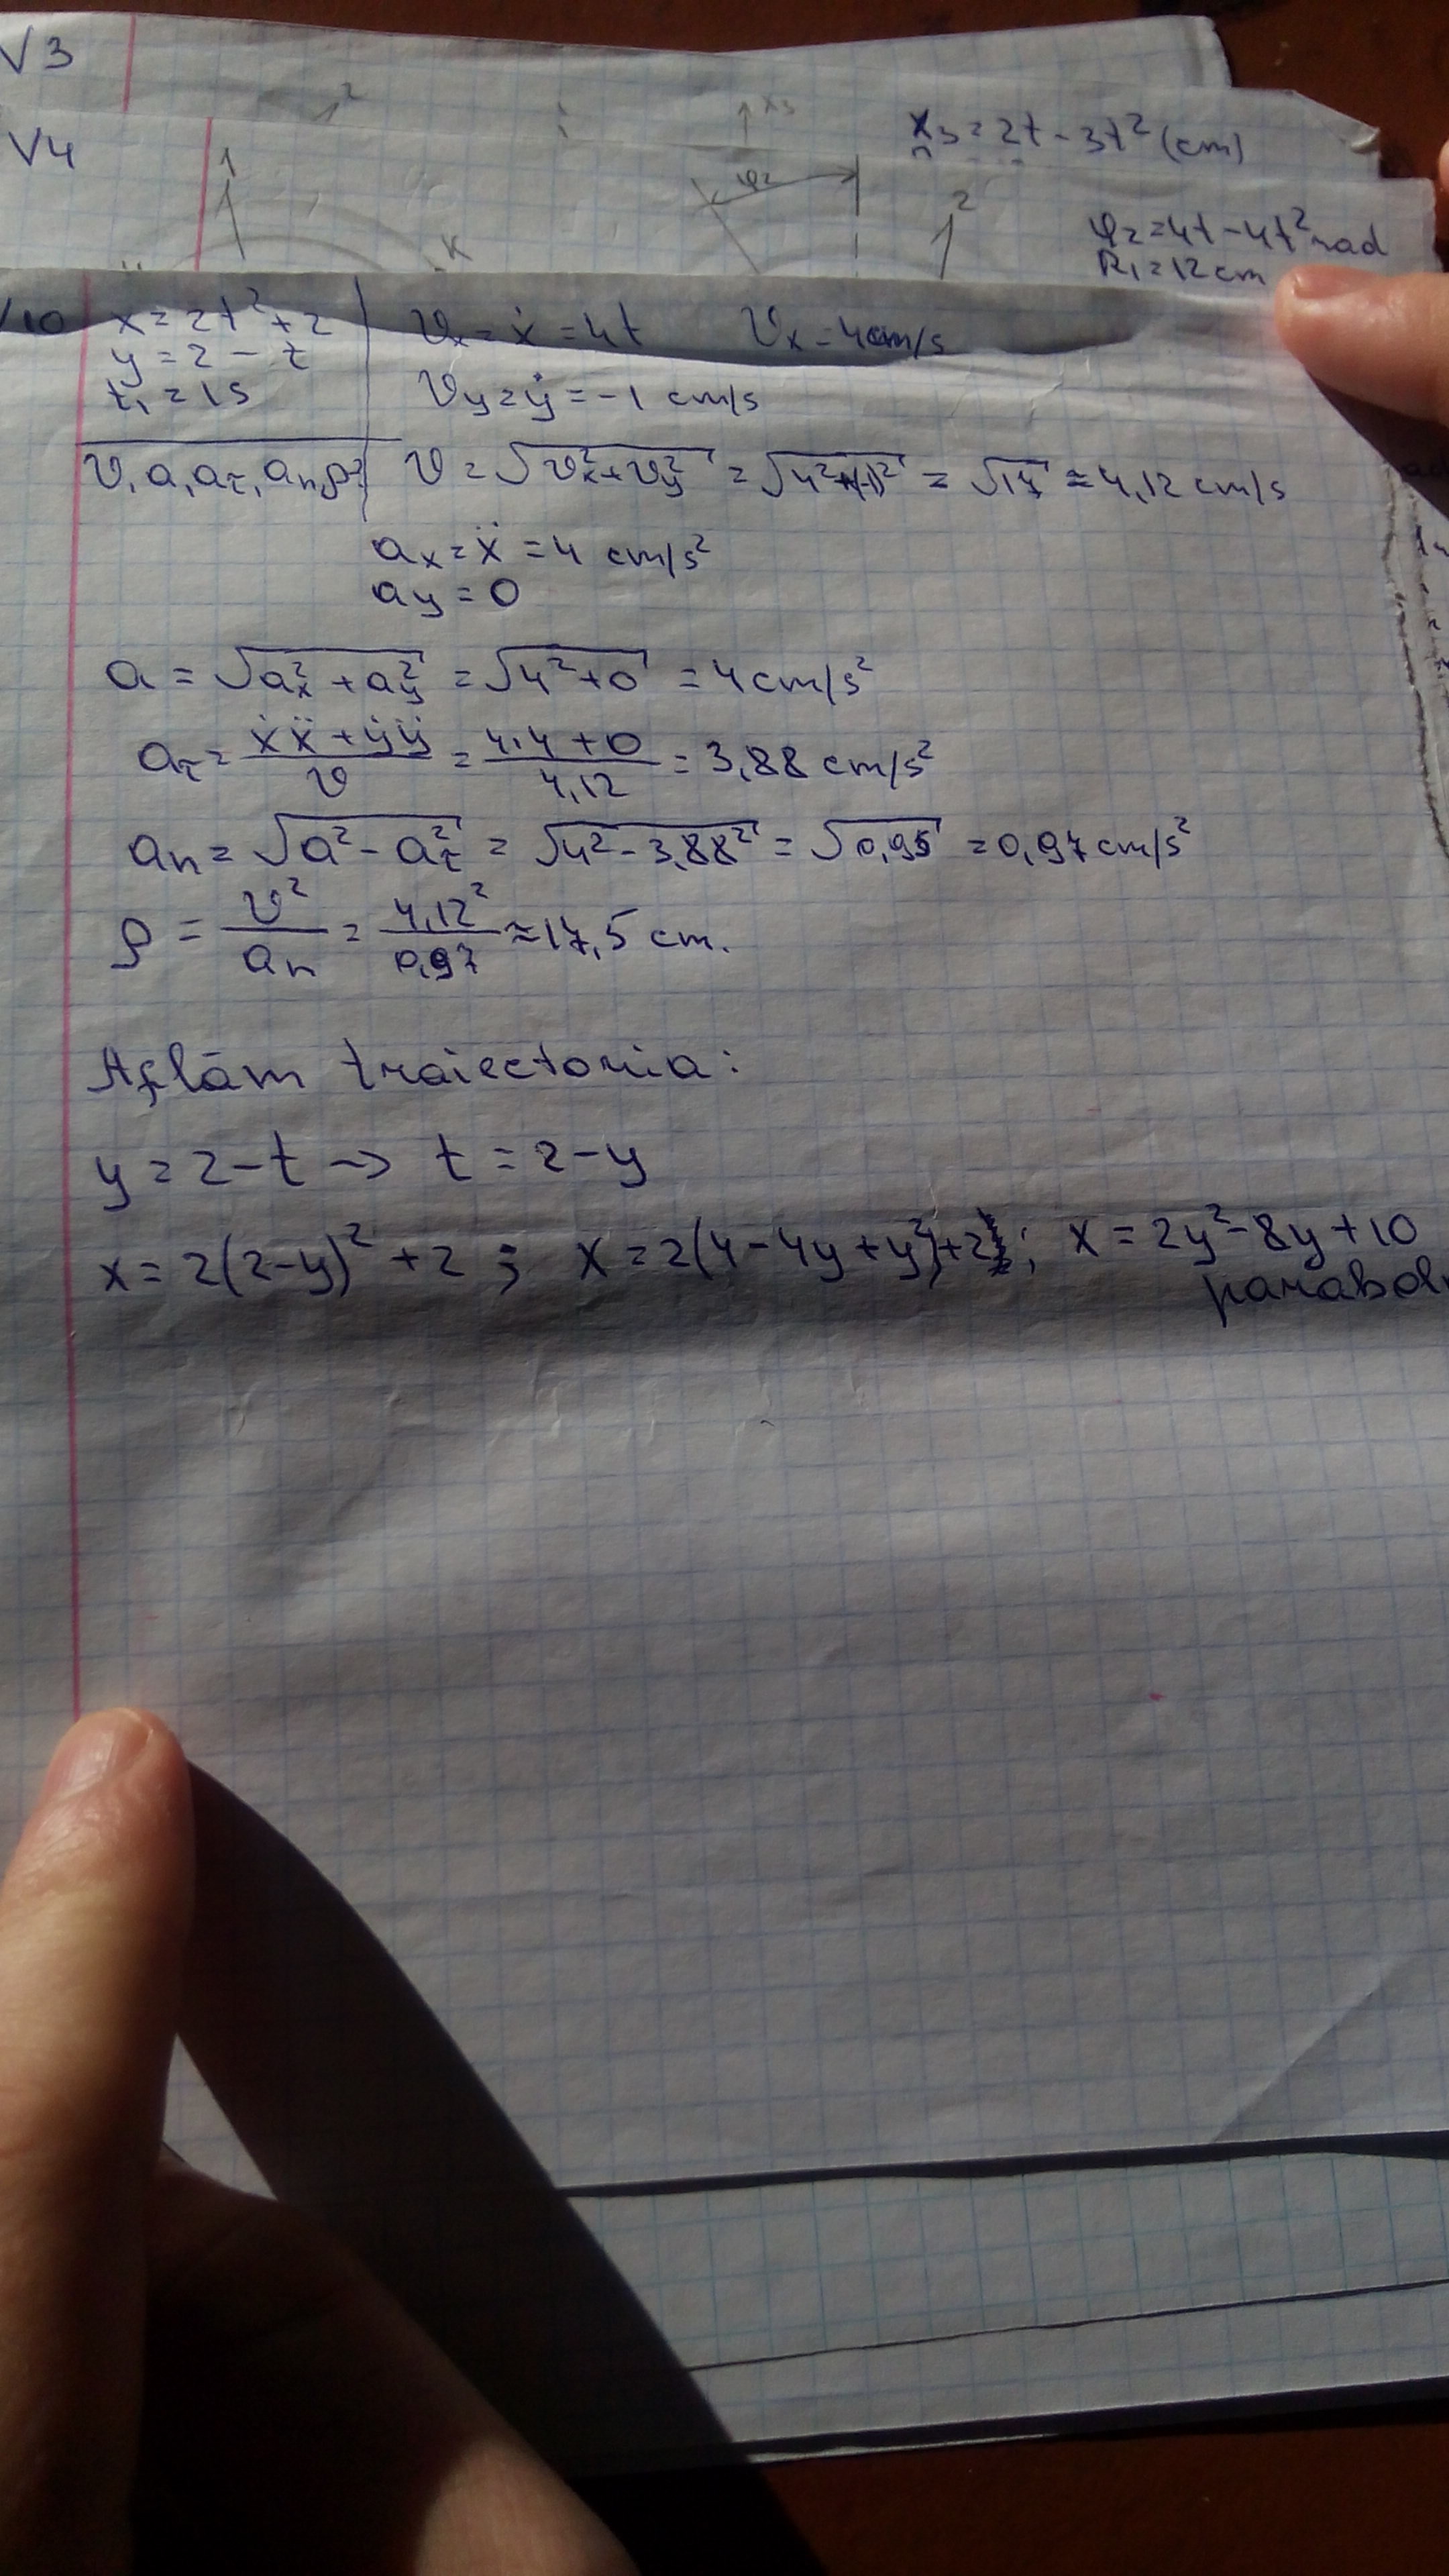 V3
2
x3
x3 = 2t - 3t² (cm)
V4
1
K
φ2
2
φ2 = 4t - 4t² rad
R1 = 12 cm
V10
x = 2t² + 2
y = 2 - t
t1 = 1s
v, a, aτ, an, ρ?
vx = ẋ = 4t vx = 4cm/s
vy = ẏ = -1 cm/s
v = √(vx² + vy²) = √(4² + (-1)²) = √17 ≈ 4,12 cm/s
ax = ẍ = 4 cm/s²
ay = 0
a = √(ax² + ay²) = √(4² + 0) = 4 cm/s²
aτ = (ẋẍ + ẏÿ)/v = (4·4 + 0)/4,12 = 3,88 cm/s²
an = √(a² - aτ²) = √(4² - 3,88²) = √0,95 = 0,97 cm/s²
ρ = v²/an = 4,12²/0,97 ≈ 17,5 cm.
Aflăm traiectoria:
y = 2 - t → t = 2 - y
x = 2(2-y)² + 2 ; x = 2(4 - 4y + y²) + 2 ; x = 2y² - 8y + 10
parabol